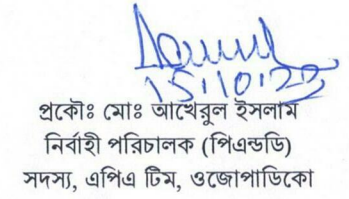 15.10.23
প্রকৌঃ মোঃ আখেরুল ইসলাম
নির্বাহী পরিচালক (পিএন্ডডি)
সদস্য, এপিএ টিম, ওজোপাডিকো